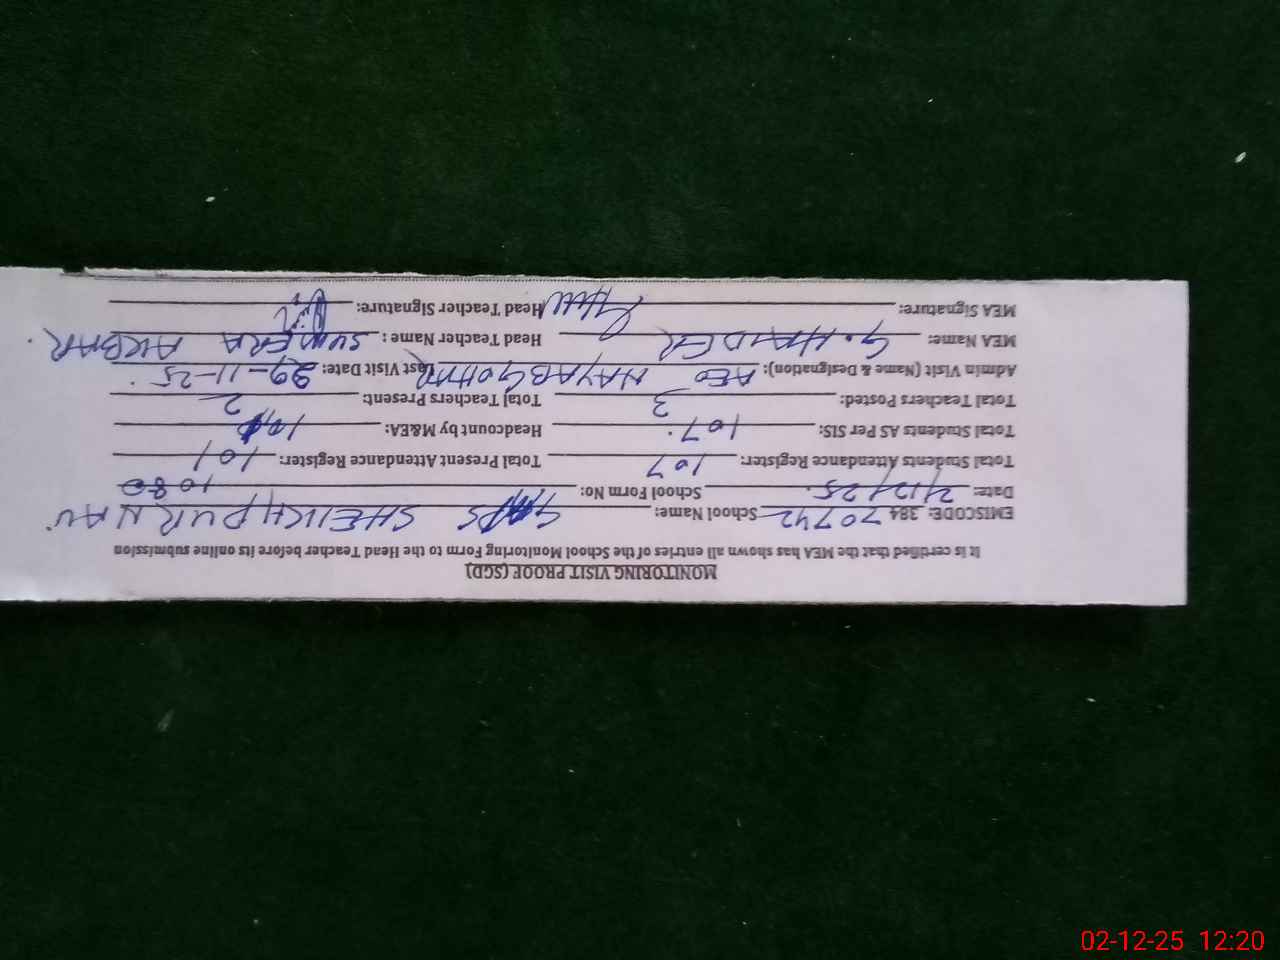 MONITORING VISIT PROOF (SGD)
It is certified that the MEA has shown all entries of the School Monitoring Form to the Head Teacher before its online submission
EMISCODE: 384 70742 School Name: SHEIKHPUR NAU
Date: 2/12/25. School Form No: 1080
Total Students Attendance Register: 107 Total Present Attendance Register: 101
Total Students AS Per SIS: 107. Headcount by M&EA:
Total Teachers Posted: 3 Total Teachers Present: 2
Admin Visit (Name & Designation): AEO NAYAB GOHAR Last Visit Date: 29-11-25
MEA Name: G. HAIDER Head Teacher Name: SUMERA AKBAR
MEA Signature: Head Teacher Signature:
02-12-25 12:20